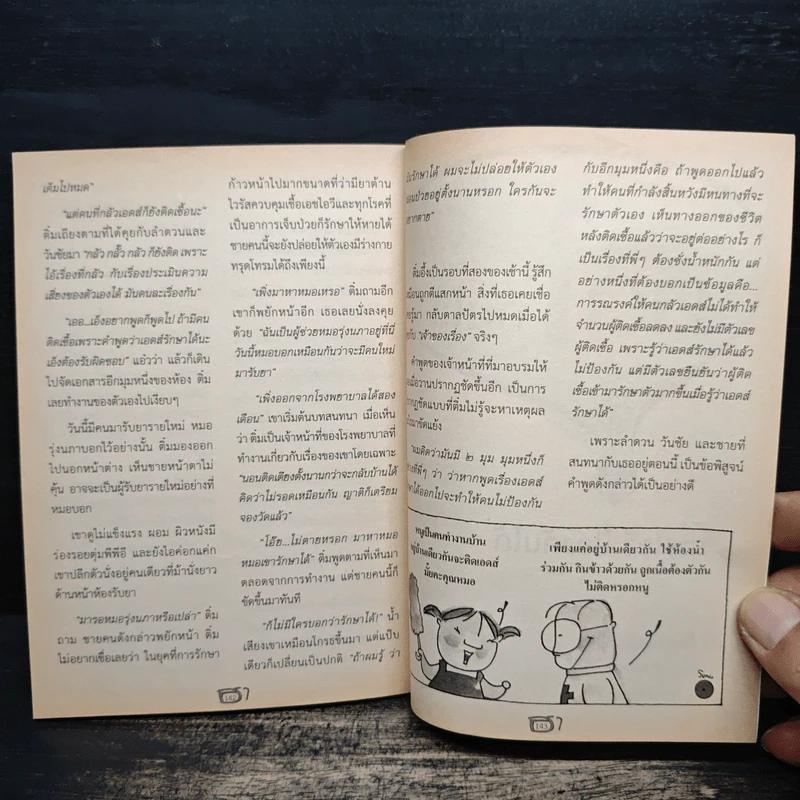 เต็มไปหมด"
"แต่คนที่กลัวเอดส์ก็ยังติดเชื้อนะ"
ติ๋มเถียงตามที่ได้คุยกับลำดวนและ
วันชัยมา "กลัว กลั๊ว กลัว ก็ยังติด เพราะ
ไอ้เรื่องที่กลัว กับเรื่องประเมินความ
เสี่ยงของตัวเองได้ มันคนละเรื่องกัน"
"เออ...เอ็งอยากพูดก็พูดไป ถ้ามีคน
ติดเชื้อเพราะคำพูดว่าเอดส์รักษาได้นะ
เอ็งต้องรับผิดชอบ" แอ๋วว่า แล้วก็เดิน
ไปจัดเอกสารอีกมุมหนึ่งของห้อง ติ๋ม
เลยทำงานของตัวเองไปเงียบๆ
วันนี้มีคนมารับยารายใหม่ หมอ
รุ่งนภาบอกไว้อย่างนั้น ติ๋มมองออก
ไปนอกหน้าต่าง เห็นชายหน้าตาไม่
คุ้น อาจจะเป็นผู้รับยารายใหม่อย่างที่
หมอบอก
เขาดูไม่แข็งแรง ผอม ผิวหนังมี
ร่องรอยตุ่มพีพีอี และยังไอค่อกแค่ก
เขาปลีกตัวนั่งอยู่คนเดียวที่ม้านั่งยาว
ด้านหน้าห้องรับยา
"มารอหมอรุ่งนภาหรือเปล่า" ติ๋ม
ถาม ชายคนดังกล่าวพยักหน้า ติ๋ม
ไม่อยากเชื่อเลยว่า ในยุคที่การรักษา
ก้าวหน้าไปมากขนาดที่ว่ามียาต้าน
ไวรัสควบคุมเชื้อเอชไอวีและทุกโรคที่
เป็นอาการเจ็บป่วยก็รักษาให้หายได้
ชายคนนี้จะยังปล่อยให้ตัวเองมีร่างกาย
ทรุดโทรมได้ถึงเพียงนี้
"เพิ่งมาหาหมอเหรอ" ติ๋มถามอีก
เขาก็พยักหน้าอีก เธอเลยนั่งลงคุย
ด้วย "ฉันเป็นผู้ช่วยหมอรุ่งนภาอยู่ที่นี่
วันนี้หมอบอกเหมือนกันว่าจะมีคนใหม่
มารับยา"
"เพิ่งออกจากโรงพยาบาลได้สอง
เดือน" เขาเริ่มต้นบทสนทนา เมื่อเห็น
ว่า ติ๋มเป็นเจ้าหน้าที่ของโรงพยาบาลที่
ทำงานเกี่ยวกับเรื่องของเขาโดยเฉพาะ
"นอนติดเตียงตั้งนานกว่าจะกลับบ้านได้
คิดว่าไม่รอดเหมือนกัน ญาติก็เตรียม
จองวัดแล้ว"
"โอ๊ย...ไม่ตายหรอก มาหาหมอ
หมอเขารักษาได้" ติ๋มพูดตามที่เห็นมา
ตลอดจากการทำงาน แต่ชายคนนี้ก็
ขัดขึ้นมาทันที
"ก็ไม่มีใครบอกว่ารักษาได้!" น้ำ
เสียงเขาเหมือนโกรธขึ้นมา แต่แป๊บ
เดียวก็เปลี่ยนเป็นปกติ "ถ้าผมรู้ ว่า
142
รักษาได้ ผมจะไม่ปล่อยให้ตัวเอง
ป่วยอยู่ตั้งนานหรอก ใครกันจะ
อยากตาย"
ติ๋มอึ้งเป็นรอบที่สองของเช้านี้ รู้สึก
เหมือนถูกตีแสกหน้า สิ่งที่เธอเคยเชื่อ
กลับตาลปัตรไปหมดเมื่อได้
"เจ้าของเรื่อง" จริงๆ
คำพูดของเจ้าหน้าที่ที่มาอบรมให้
เมื่อวานปรากฏชัดขึ้นอีก เป็นการ
ปรากฏชัดแบบที่ติ๋มไม่รู้จะหาเหตุผล
มาขัดแย้ง
"ผมคิดว่ามันมี ๒ มุม มุมหนึ่งก็
ที่พี่ๆ ว่า ว่าหากพูดเรื่องเอดส์
รักษาได้ออกไปจะทำให้คนไม่ป้องกัน
กับอีกมุมหนึ่งคือ ถ้าพูดออกไปแล้ว
ทำให้คนที่กำลังสิ้นหวังมีหนทางที่จะ
รักษาตัวเอง เห็นทางออกของชีวิต
หลังติดเชื้อแล้วว่าจะอยู่ต่ออย่างไร ก็
เป็นเรื่องที่พี่ๆ ต้องชั่งน้ำหนักกัน แต่
อย่างหนึ่งที่ต้องบอกเป็นข้อมูลคือ...
การรณรงค์ให้คนกลัวเอดส์ไม่ได้ทำให้
จำนวนผู้ติดเชื้อลดลง และยังไม่มีตัวเลข
ผู้ติดเชื้อ เพราะรู้ว่าเอดส์รักษาได้แล้ว
ไม่ป้องกัน แต่มีตัวเลขยืนยันว่าผู้ติด
เชื้อเข้ามารักษาตัวมากขึ้นเมื่อรู้ว่าเอดส์
รักษาได้"
เพราะลำดวน วันชัย และชายที่
สนทนากับเธออยู่ตอนนี้ เป็นข้อพิสูจน์
คำพูดดังกล่าวได้เป็นอย่างดี
หนูเป็นคนทำงานบ้าน
อยู่บ้านเดียวกันจะติดเอดส์
มั้ยคะคุณหมอ
เพียงแค่อยู่บ้านเดียวกัน ใช้ห้องน้ำ
ร่วมกัน กินข้าวด้วยกัน ถูกเนื้อต้องตัวกัน
ไม่ติดหรอกหนู
143